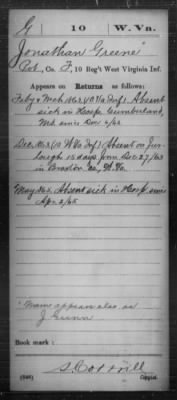 G 10 W. Vn.
Jonathan Greene
Pvt, Co. F, 10 Reg't West Virginia Inf.
Appears on Returns as follows:
Feby & Mch 1863 (10 Va Inf) Absent
sick in Hosp. Cumberland,
Md. since Dec /62
Dec 1863 (10 W Va Inf) Absent on fur-
lough 15 days from Dec 27/63
in Braxton Co., W. Va.
Absent sick in Hosp. since
Apr 2/65
Name appears also as
J. Gunn
Book mark:
S. Cottrill
(546) Copyist.